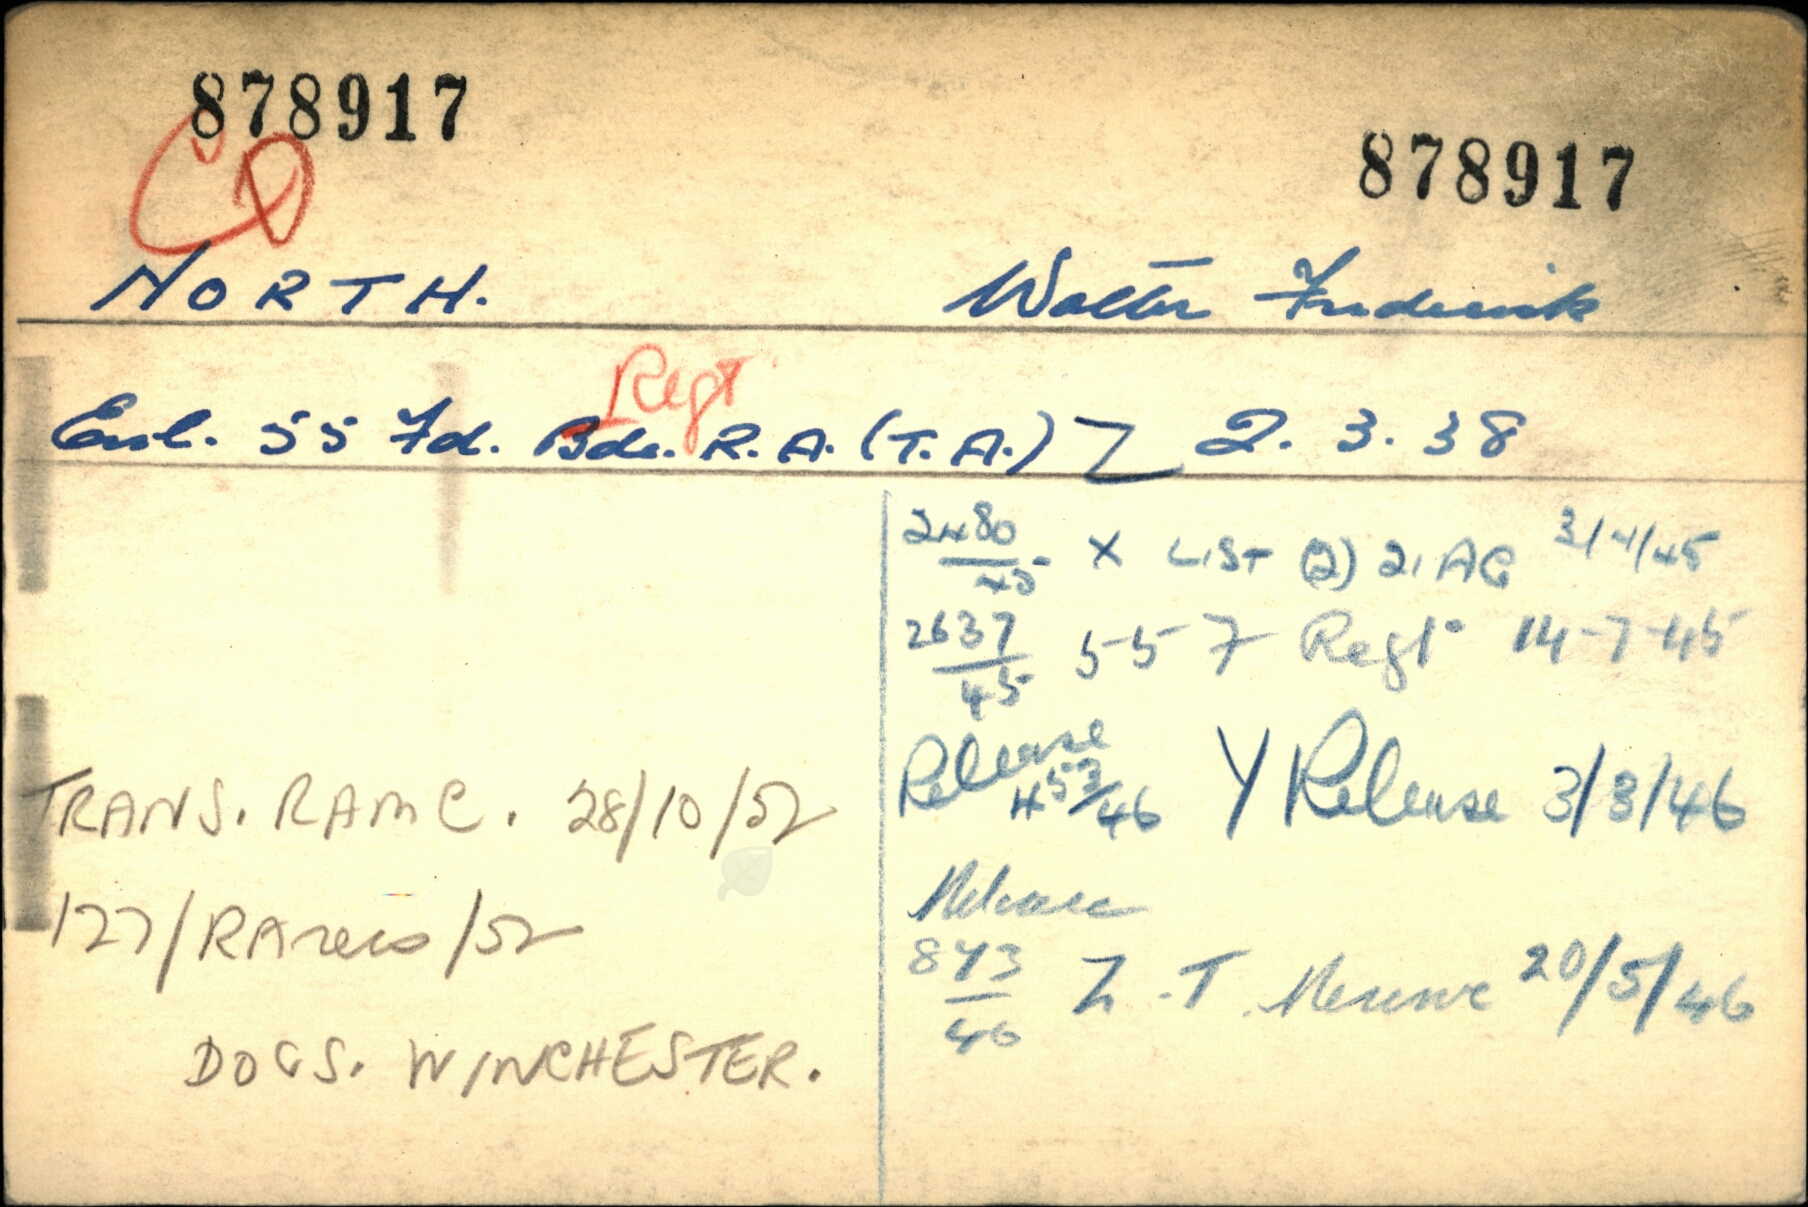 878917
878917
CD
NORTH.
Walter Frederick
Regt
Enl. 55 Fd. Bde. R.A. (T.A.) Z 2. 3. 38
2480/45 X LIST (2) 21 AG 3/4/45
2637/45 55 F Regt 14-7-45
Release 45 3/46 Y Release 3/3/46
TRANS. RAMC. 28/10/52
Release
127/RAMC/52
873/46 Z. T. Reserve 20/5/46
DOCS. WINCHESTER.